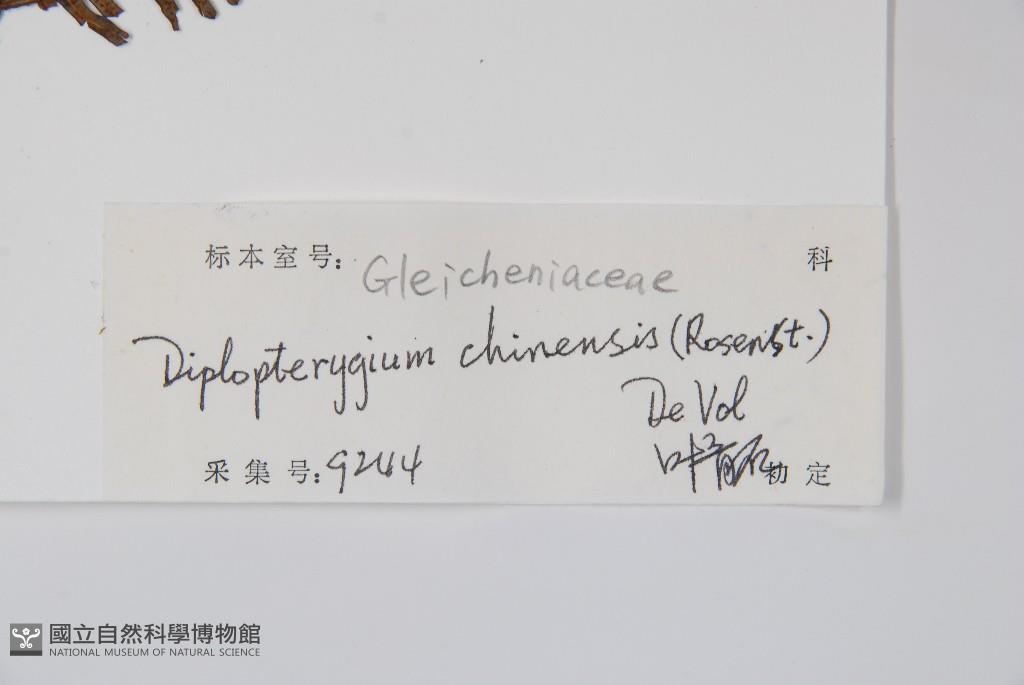 标本室号: Gleicheniaceae 科
Diplopterygium chinensis (Rosenst.)
De Vol
采集号: 9244 定
國立自然科學博物館
NATIONAL MUSEUM OF NATURAL SCIENCE